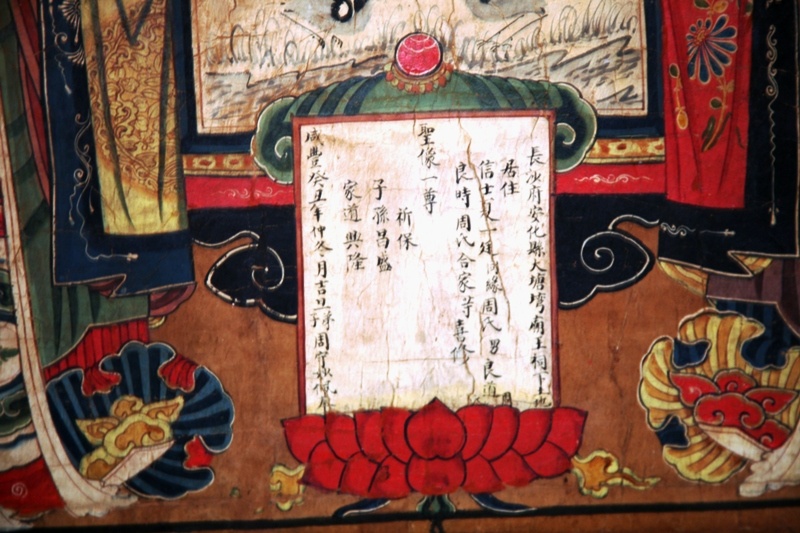 長沙府安化縣大塘塆廟王祠下土地
居住
信士夏一廷 緣周氏男良道
良時周氏合家等喜修
聖像一尊
祈保
子孫昌盛
家道興隆
咸豐癸丑年仲冬月吉旦 周